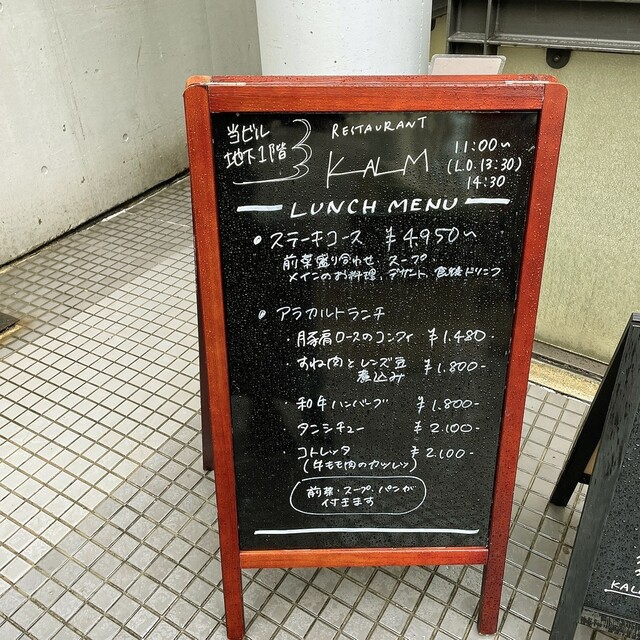 当ビル
地下1階
RESTAURANT
KALM
11:00〜
(L.O.13:30)
14:30
LUNCH MENU
• ステーキコース ¥4950〜
前菜盛り合わせ、スープ、
メインのお料理、デザート、食後ドリンク
• アラカルトランチ
・豚肩ロースのコンフィ ¥1.480-
・すね肉とレンズ豆 ¥1.800-
煮込み
・和牛ハンバーグ ¥1.800-
タンシチュー ¥2.100-
・コトレッタ ¥2.100-
(牛もも肉のカツレツ)
前菜・スープ・パンが
付きます
KAL